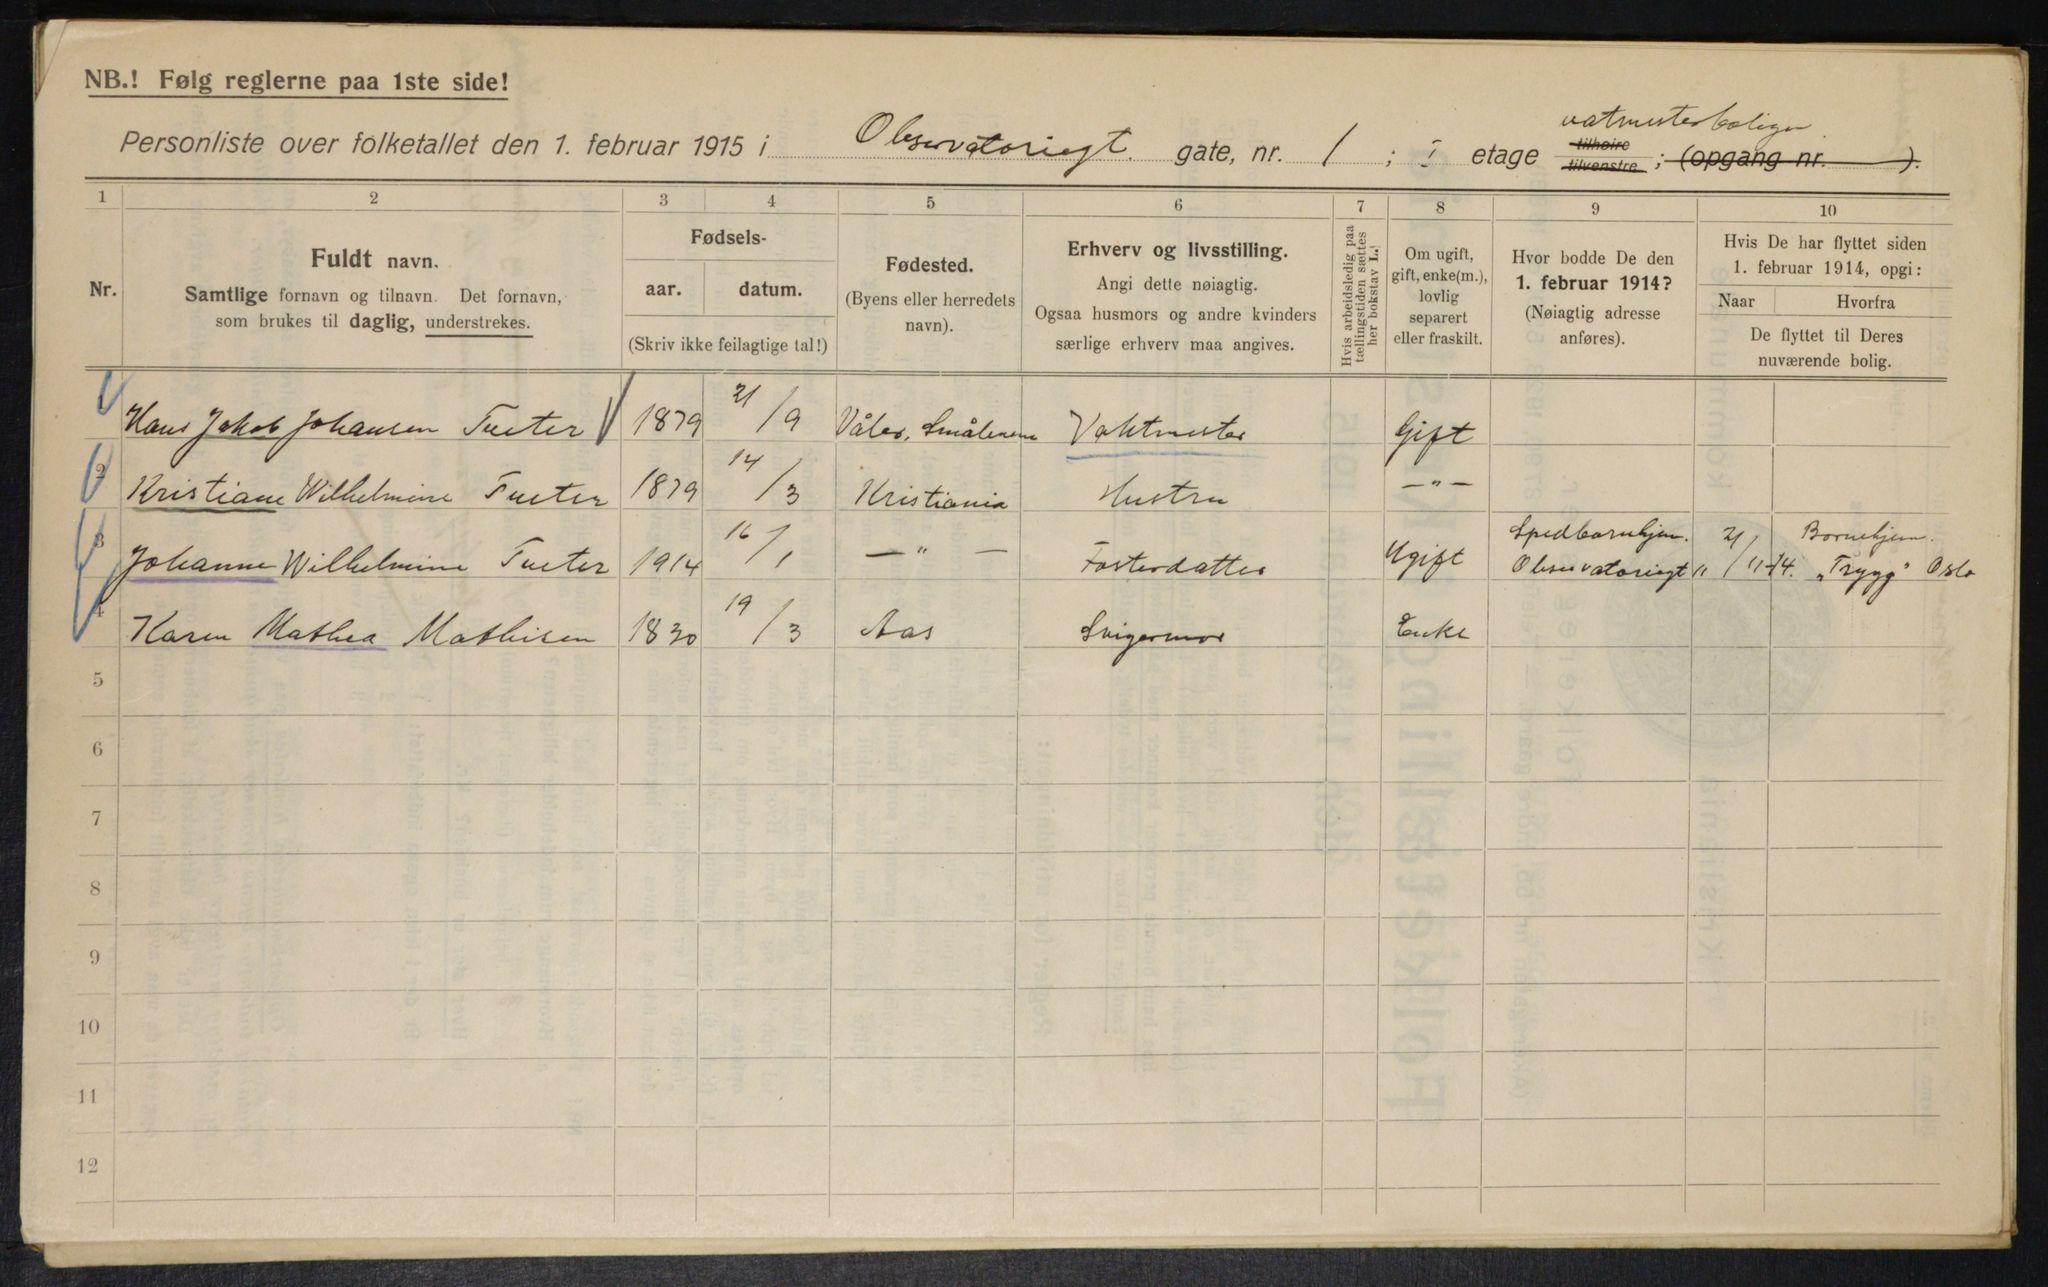 NB.! Følg reglerne paa 1ste side!
vatmesterboligen
Personliste over folketallet den 1. februar 1915 i Observatoriegt. gate, nr. 1; I etage tilhøire tilvenstre; (opgang nr. ).
1 2 3 4 5 6 7 8 9 10
Nr.
Fuldt navn.
Samtlige fornavn og tilnavn. Det fornavn,
som brukes til daglig, understrekes.
Fødsels-
aar. datum.
(Skriv ikke feilagtige tal!)
Fødested.
(Byens eller herredets
navn).
Erhverv og livsstilling.
Angi dette nøiagtig.
Ogsaa husmors og andre kvinders
særlige erhverv maa angives.
Hvis arbeidsledig paa
tællingstiden sættes
her bokstav L.!
Om ugift,
gift, enke(m.),
lovlig
separert
eller fraskilt.
Hvor bodde De den
1. februar 1914?
(Nøiagtig adresse
anføres).
Hvis De har flyttet siden
1. februar 1914, opgi:
Naar Hvorfra
De flyttet til Deres
nuværende bolig.
1 Hans Jakob Johansen Tueter 1879 21/9 Våler, Smålenene Vaktmester Gift
2 Kristiane Wilhelmine Tueter 1879 14/3 Kristiania Hustru — " —
3 Johanne Wilhelmine Tueter 1914 16/1 — " — Fosterdatter Ugift Spedbarnhjem. Observatoriegt 21/11-14. Barnehjem. „Trygg" Oslo
4 Karen Mathea Mathisen 1830 19/3 Aas Svigermor Enke
5
6
7
8
9
10
11
12